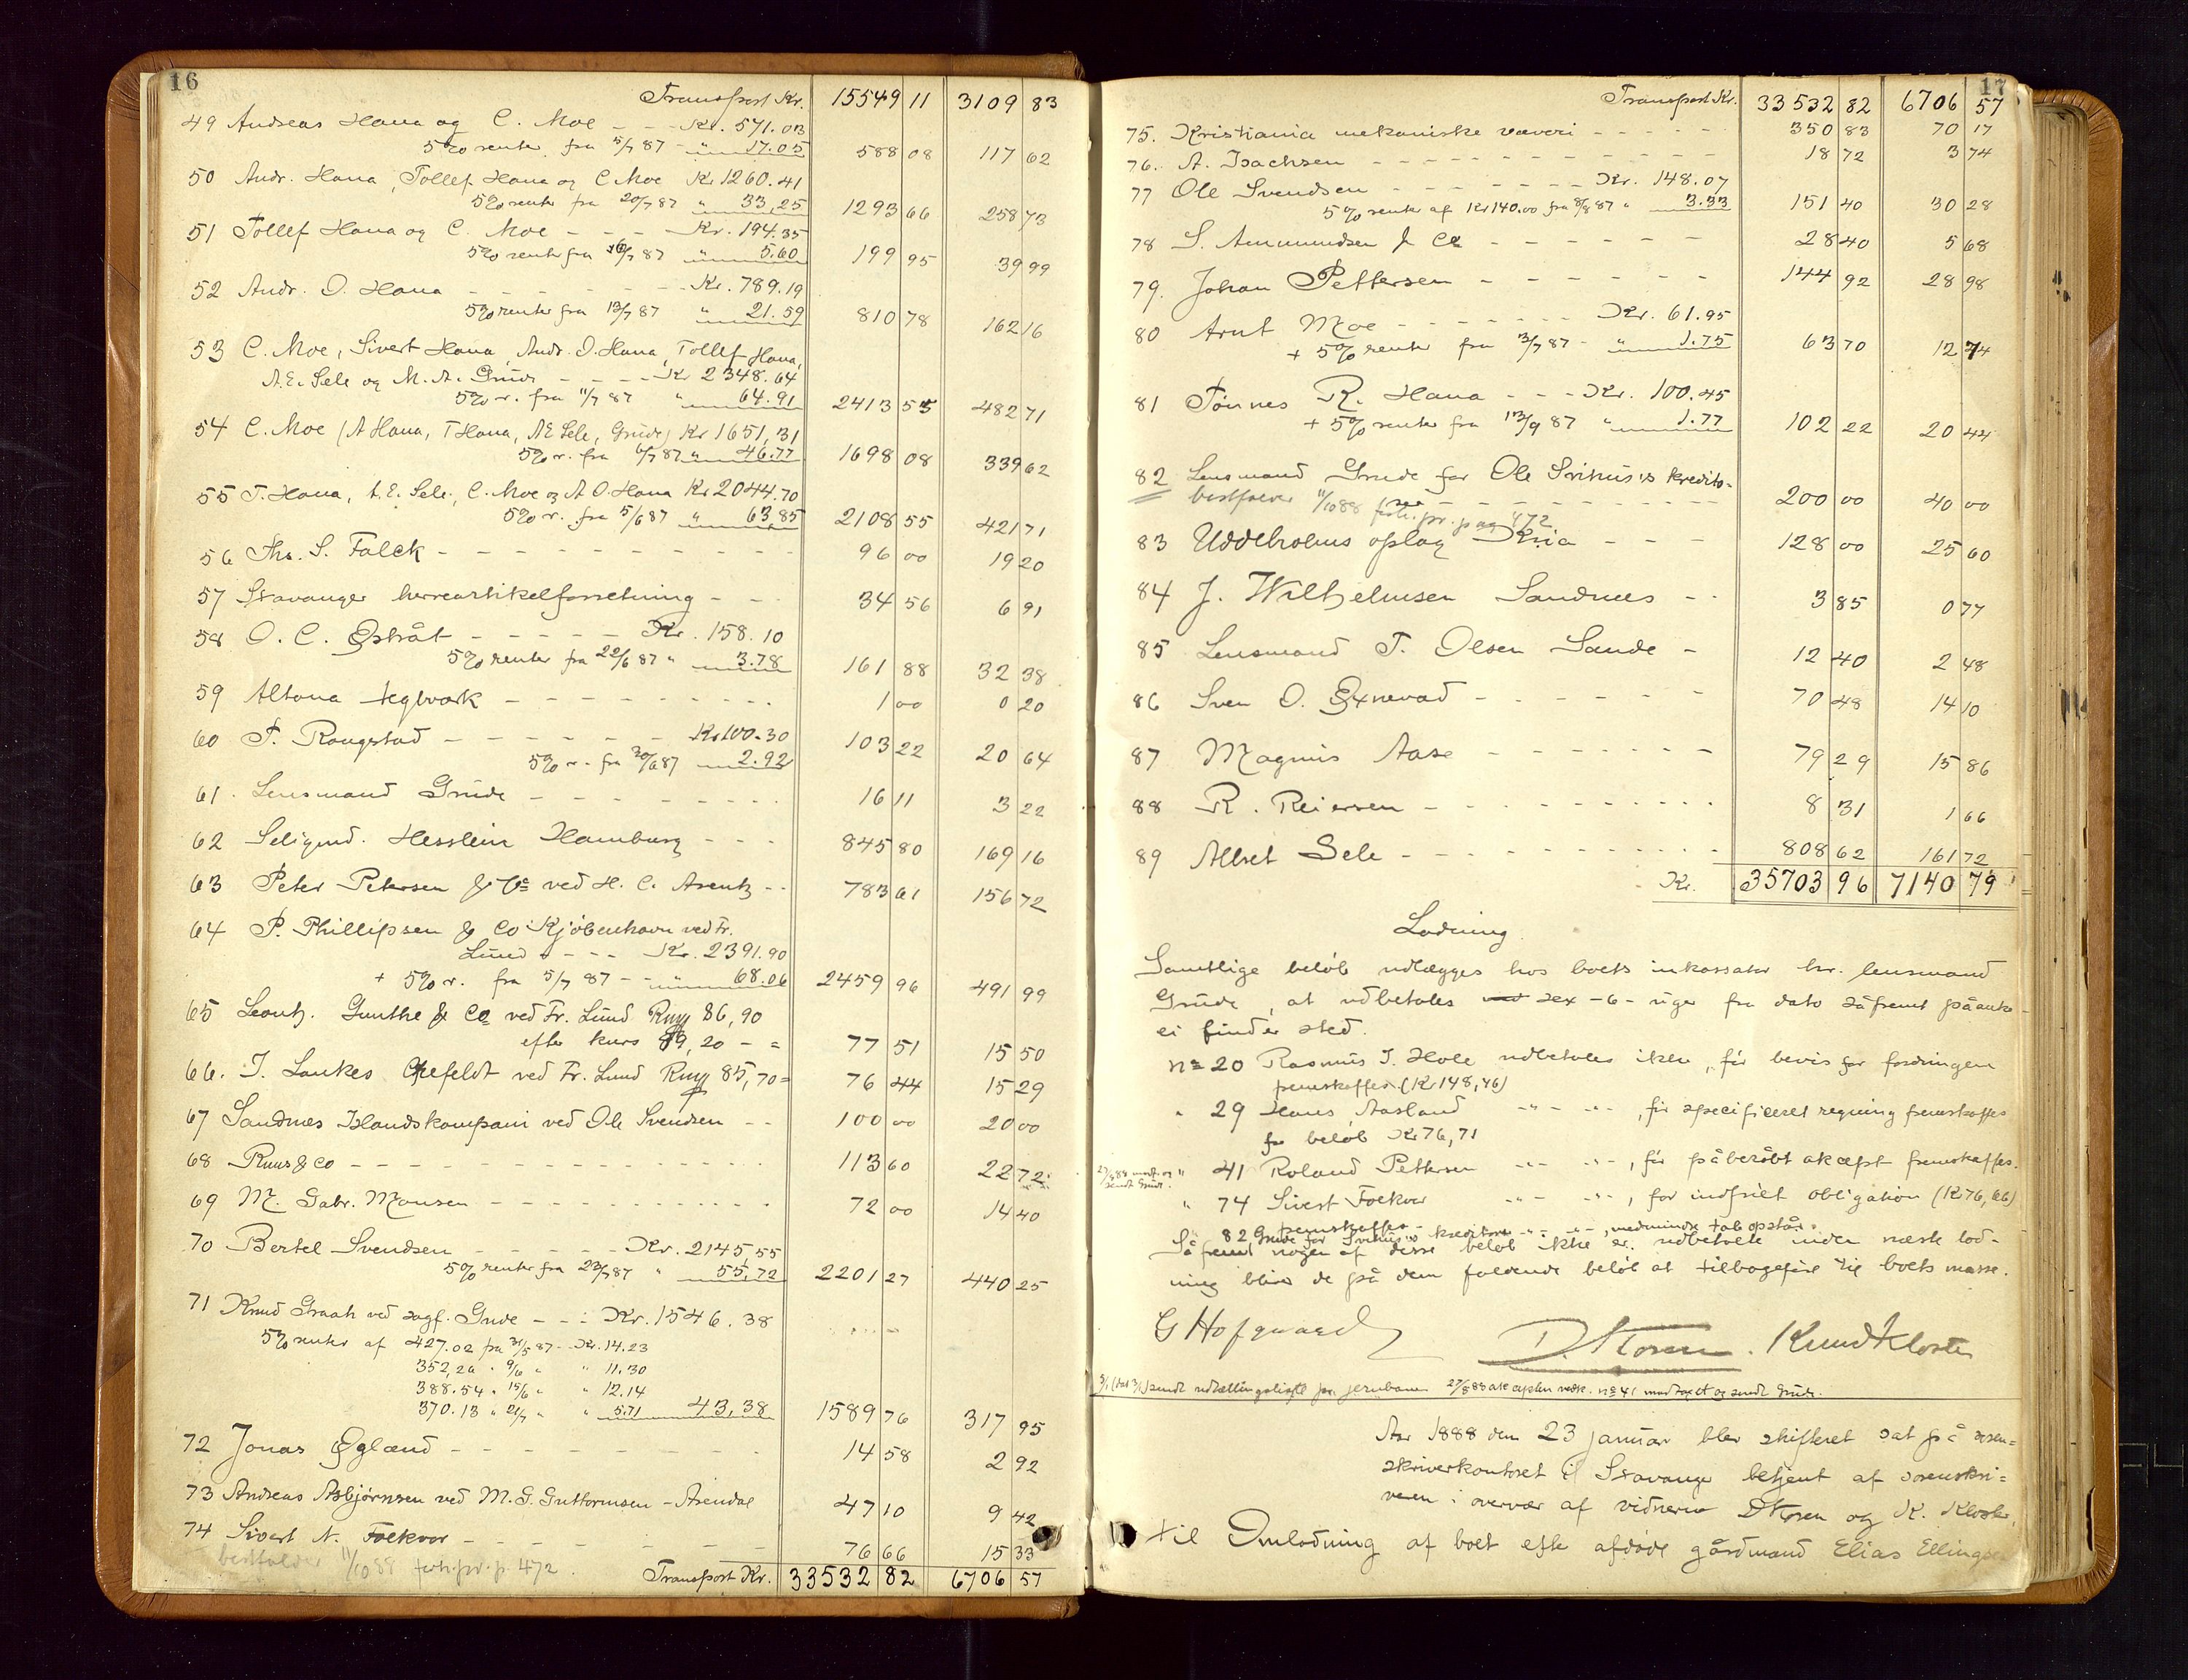 16
Transport Kr. 15549 11 3109 83
49 Andreas Hana og C. Moe - - - Kr. 571.03
5% renter fra 5/7 87 - " 17.05 588 08 117 62
50 Andr. Hana, Tollef Hana og C. Moe Kr 1260.41
5% renter fra 20/7 87 " 33,25 1293 66 258 73
51 Tollef Hana og C. Moe - - - - Kr. 194.35
5% renter fra 16/7 87 " 5.60 199 95 39 99
52 Andr. O. Hana - - - - - Kr. 789.19
5% renter fra 13/7 87 " 21.59 810 78 162 16
53 C. Moe, Sivert Hana, Andr. O. Hana, Tollef Hana,
A.E. Sele og M. A. Grude - - - - Kr 2348.64
5% r. fra 11/7 87 " 64.91 2413 55 482 71
54 C. Moe (A Hana, T Hana, A E Sele, Grude) Kr 1651,31
5% r. fra 6/7 87 " 46.77 1698 08 339 62
55 T. Hana, A. E. Sele, C. Moe og A O. Hana Kr 2044.70
5% r. fra 5/6 87 " 63,85 2108 55 421 71
56 Ths. S. Falck - - - - - - - - 96 00 19 20
57 Stavanger herreartikelforretning - - - 34 56 6 91
58 O. C. Østråt - - - - - Kr. 158.10
5% renter fra 22/6 87 " 3.78 161 88 32 38
59 Altona teglværk - - - - - - - - 1 00 0 20
60 T. Rougstad - - - - - - Kr 100.30
5% r. fra 30/6 87 2.92 103 22 20 64
61. Lensmand Grude - - - - - - - - 16 11 3 22
62 Seligmd. Hesslein Hamburg - - - 845 80 169 16
63 Peter Petersen & Co ved H. C. Arentz - - 783 61 156 72
64 P. Phillipsen & Co Kjöbenhavn ved Fr.
Lund - - - Kr. 2391.90
+ 5% r. fra 5/7 87 - - " 68.06 2459 96 491 99
65 Leonh. Gunthe & Co ved Fr. Lund Rmf 86,90
efter kurs 89,20 - = 77 51 15 50
66. J. Lankes Crefeldt ved Fr. Lund Rmf 85,70 = 76 44 15 29
67 Sandnes Handskompani ved Ole Svendsen - - 100 00 20 00
68 Ruus & Co - - - - - - - - - 113 60 22 72
69 M. Gabr. Monsen - - - - - - - - 72 00 14 40
70 Bertel Svendsen - - - - - Kr. 2145,55
5% renter fra 23/7 87 " 55,72 2201 27 440 25
71 Knud Graah ved sagf. Grude - - - Kr. 1546.38
5% renter af 427.02 fra 31/5 87 - Kr. 14.23
352,26 " 9/6 " " 11.30
388.54 " 15/6 " " 12.14
370.13 " 21/7 " " 5.71 43,38 1589 76 317 95
72 Jonas Øglænd - - - - - - - 14 58 2 92
73 Andreas Asbjørnsen ved M. G. Guttormsen - Arendal 47 10 9 42
74 Sivert N. Folkvor - - - - - - 76 66 15 33
bortfalder 11/10 88 forh.pr. p. 472.
Transport Kr. 33532 82 6706 57
17
Transport Kr. 33532 82 6706 57
75. Kristiania mekaniske væveri - - - - - 350 83 70 17
76. A. Isachsen - - - - - - - - - - 18 72 3 74
77 Ole Svendsen - - - - - - - Kr. 148.07
5% renter af Kr 140.00 fra 8/8 87 " 3.33 151 40 30 28
78 S. Ammundsen & Co - - - - - - 28 40 5 68
79. Johan Pettersen - - - - - - 144 92 28 98
80 Arnt Moe - - - - - - - Kr. 61.95
+ 5% renter fra 3/7 87 - " 1.75 63 70 12 74
81 Tønnes R. Hana - - - Kr. 100.45
+ 5% renter fra 13/9 87 " 1.77 102 22 20 44
82 Lensmand Grude for Ole Svihus's kredito-
rer - - - - - - - - 200 00 40 00
bortfalder 11/10 88 forh. pr. pag 472
83 Uddeholms oplag Kria - - - 128 00 25 60
84 J. Wilhelmsen Sandnes - - 3 85 0 77
85 Lensmand T. Olsen Sande - 12 40 2 48
86 Sven O. Øxnevad - - - - - 70 48 14 10
87 Magnus Aase - - - - - - 79 29 15 86
88 R. Reiersen - - - - - - - - 8 31 1 66
89 Albret Sele - - - - - - - - - 808 62 161 72
Kr. 35703 96 7140 79
Lodning
Samtlige beløb udlægges hos boets inkassator hr. lensmand
Grude, at udbetales sex - 6 - uger fra dato såfremt påanke
ei finder sted.
no 20 Rasmus T. Hole udbetales ikke, før bevis for fordringen
fremskaffes (Kr 148,46)
" 29 Hans Aasland - " - - " -, før specificeret regning fremskaffes
for beløb Kr 76,71
" 41 Roland Pettersen - " - - " -, før påberåbt akcept fremskaffes.
" 74 Sivert Folkvor - " - - " -, før indfriet obligation (Kr 76,66)
fremskaffes -
" 82 Grude for Svihus's kreditorer - " - - " -, medmindre tab opstår.
Såfremt nogen af disse beløb ikke er udbetalte inden næste lod-
ning bliver de på dem faldende beløb at tilbageføre til boets masse.
G Hofgaard D. Storm. Knud Kloster
sendt udtællingsliste pr. jernbanen 27/5 88 akcepten vedk. no 41 modtaget og sendt Grude.
Aar 1888 den 23 januar blev skifteret sat på soren=
skriverkontoret i Stavanger betjent af sorenskri=
veren i overvær af vidnerne D Storm og K. Kloster,
til Omlodning af boet efter afdøde gårdmand Elias Ellingsen